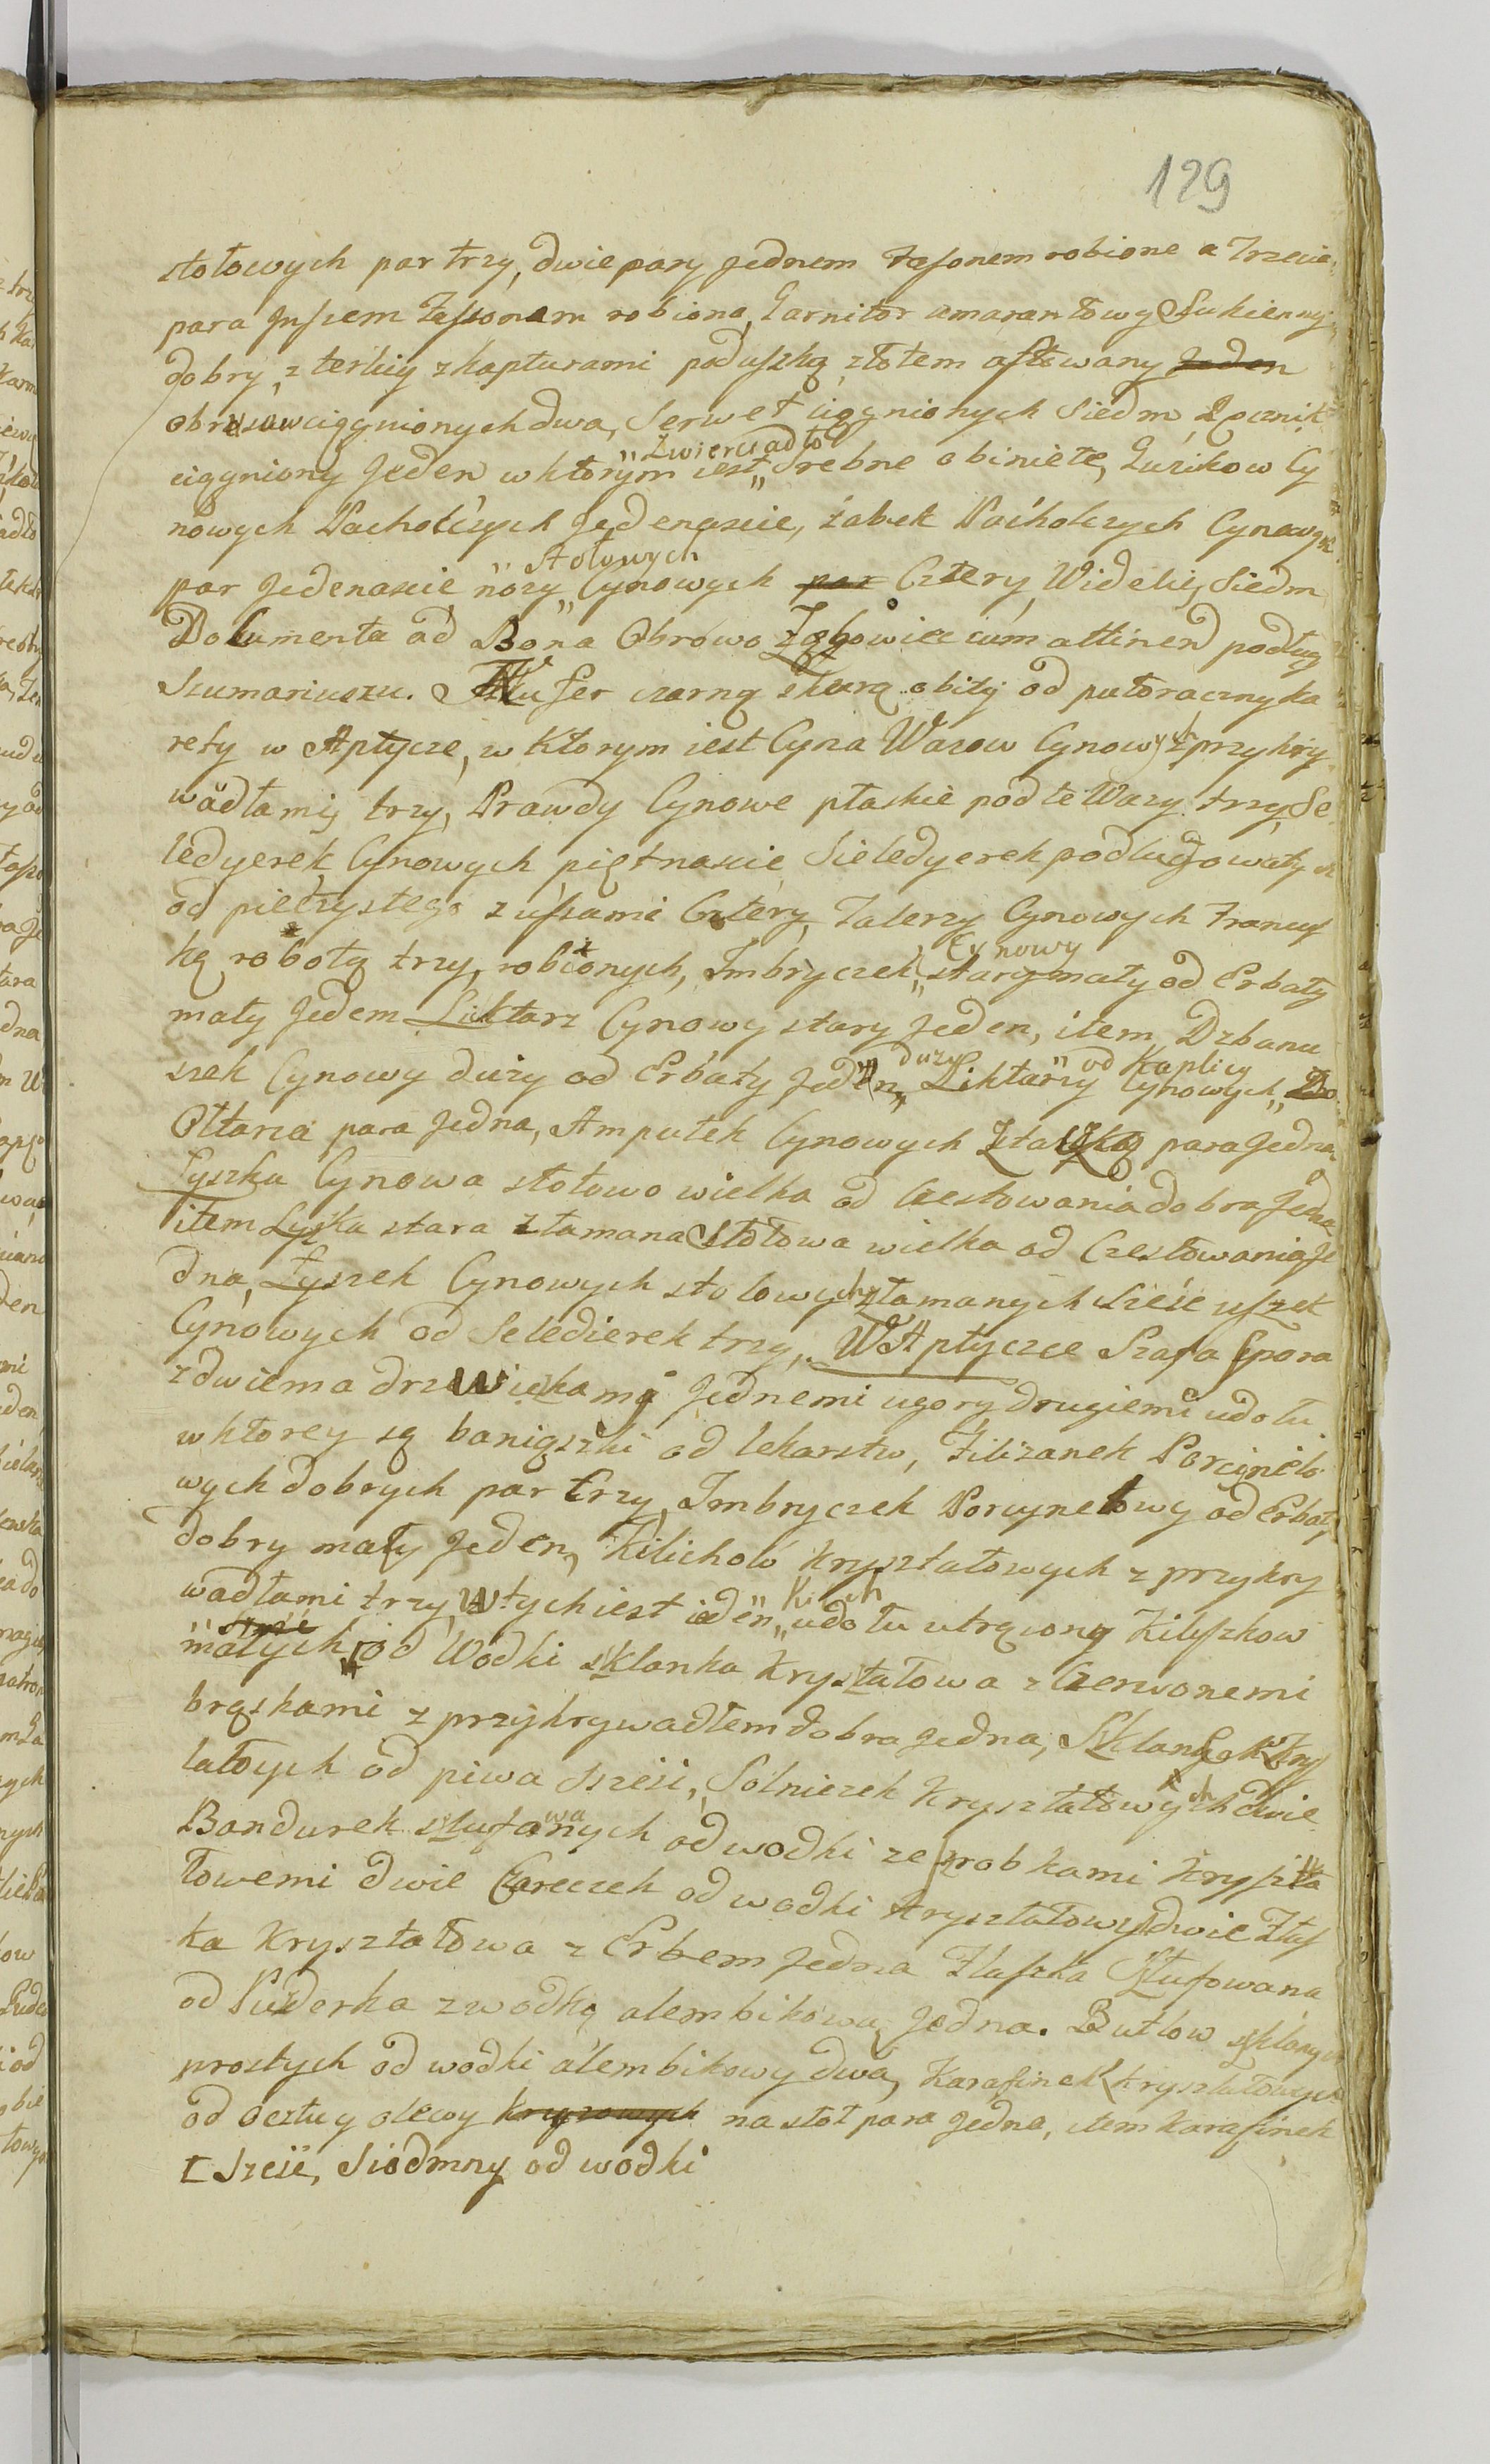 129
stołowych par trzy, dwie pary Jednem Fasonem robione a Trzecia
para Juszem Fassonem robiona, Garnitor amarantowy Sukienny
dobry, z terlicy z kapturami poduszką złotem aftowany Jeden
obrusow ciągnionych dwa, Serwet ciągnionych Siedm Ręcznik
ciągniony Jeden w ktorym iest „Zwierciadło„ srebne obiniete, Guzikow Cy
nowych Pacholczych Jedenascie, żabek Pacholczych Cynowych
par Jedenascie nozy „Stołowych„ Cynowych par Cztery, Widelcy Siedm
Dokumenta od Bona Obrowo Ząbowice cum attinen podług
Szumariuszu. Kufer czarną skurą obity od putoraczny ka
rety w Aptyce, w Ktorym iest Cyna Wazow Cynowych z przykry
wadłamij trzy, Prawdy Cynowe płaskie pod te Wazy trzy, Se
ledyerek Cynowych piętnascie Sieledyerek podługowatych
od pieczystego z uszami Cztery, Talerzy Cynowych Francus
ką robotą trzy, robionych, Imbryczek „Cynowy stary mały od Erbaty
mały Jeden Liktarz Cynowy stary Jeden, item Dzbanu
szek Cynowy duży od Erbaty Jeden „duzy Liktarzy Cynowych „od Kaplicy„ Do
Ołtarza para Jedna, Ampułek Cynowych Ztaczką para Jedna
Łyszka Cynowa stołowo wielka od Czestowania dobra Jedna
item Lyszka stara złamana Stołowa wielka od Czestowania Je
dna, Łyszek Cynowych stolowych złamanych Sześc uszek
Cynowych od Seledierek trzy, W Aptyczce Szafa spora
z dwiema drzwiczkamy Jednemi ugory drugiemi udołu
w ktorey są baniąszki od lekarstw, Filizanek Porcineło
wych dobrych par trzy, Imbryczek Porcynelowy od Erbaty
dobry mały Jeden, Kilichow Kryształowych z przykry
wadłami trzy, w tych iest ieden „Kilich„ udołu utrącony Kiliszkow
małych szesc od Wodki sklanka Kryształowa z Czerwonemi
brąskami z przykrywadłem dobra Jedna, Sklanek Krys
tałoych od piwa szesc, Solniczek Kryształowych dwie
Bandurek sztufowanych od wodki ze szrobkami Kryszta
łowemi dwie Czareczek od wodki Kryształowy dwie Flasz
ka Kryształowa z Erbem Jedna Flaszka Sztufowana
od Puzderka z wodką alembikową Jedna. Butlow sklanych
prostych od wodki alembikowy dwa, Karafinek Kryształowych
od octu y oliwy Kryzowych na stoł para Jedna, item Karafinek
Szesc, Siodmny od wodki